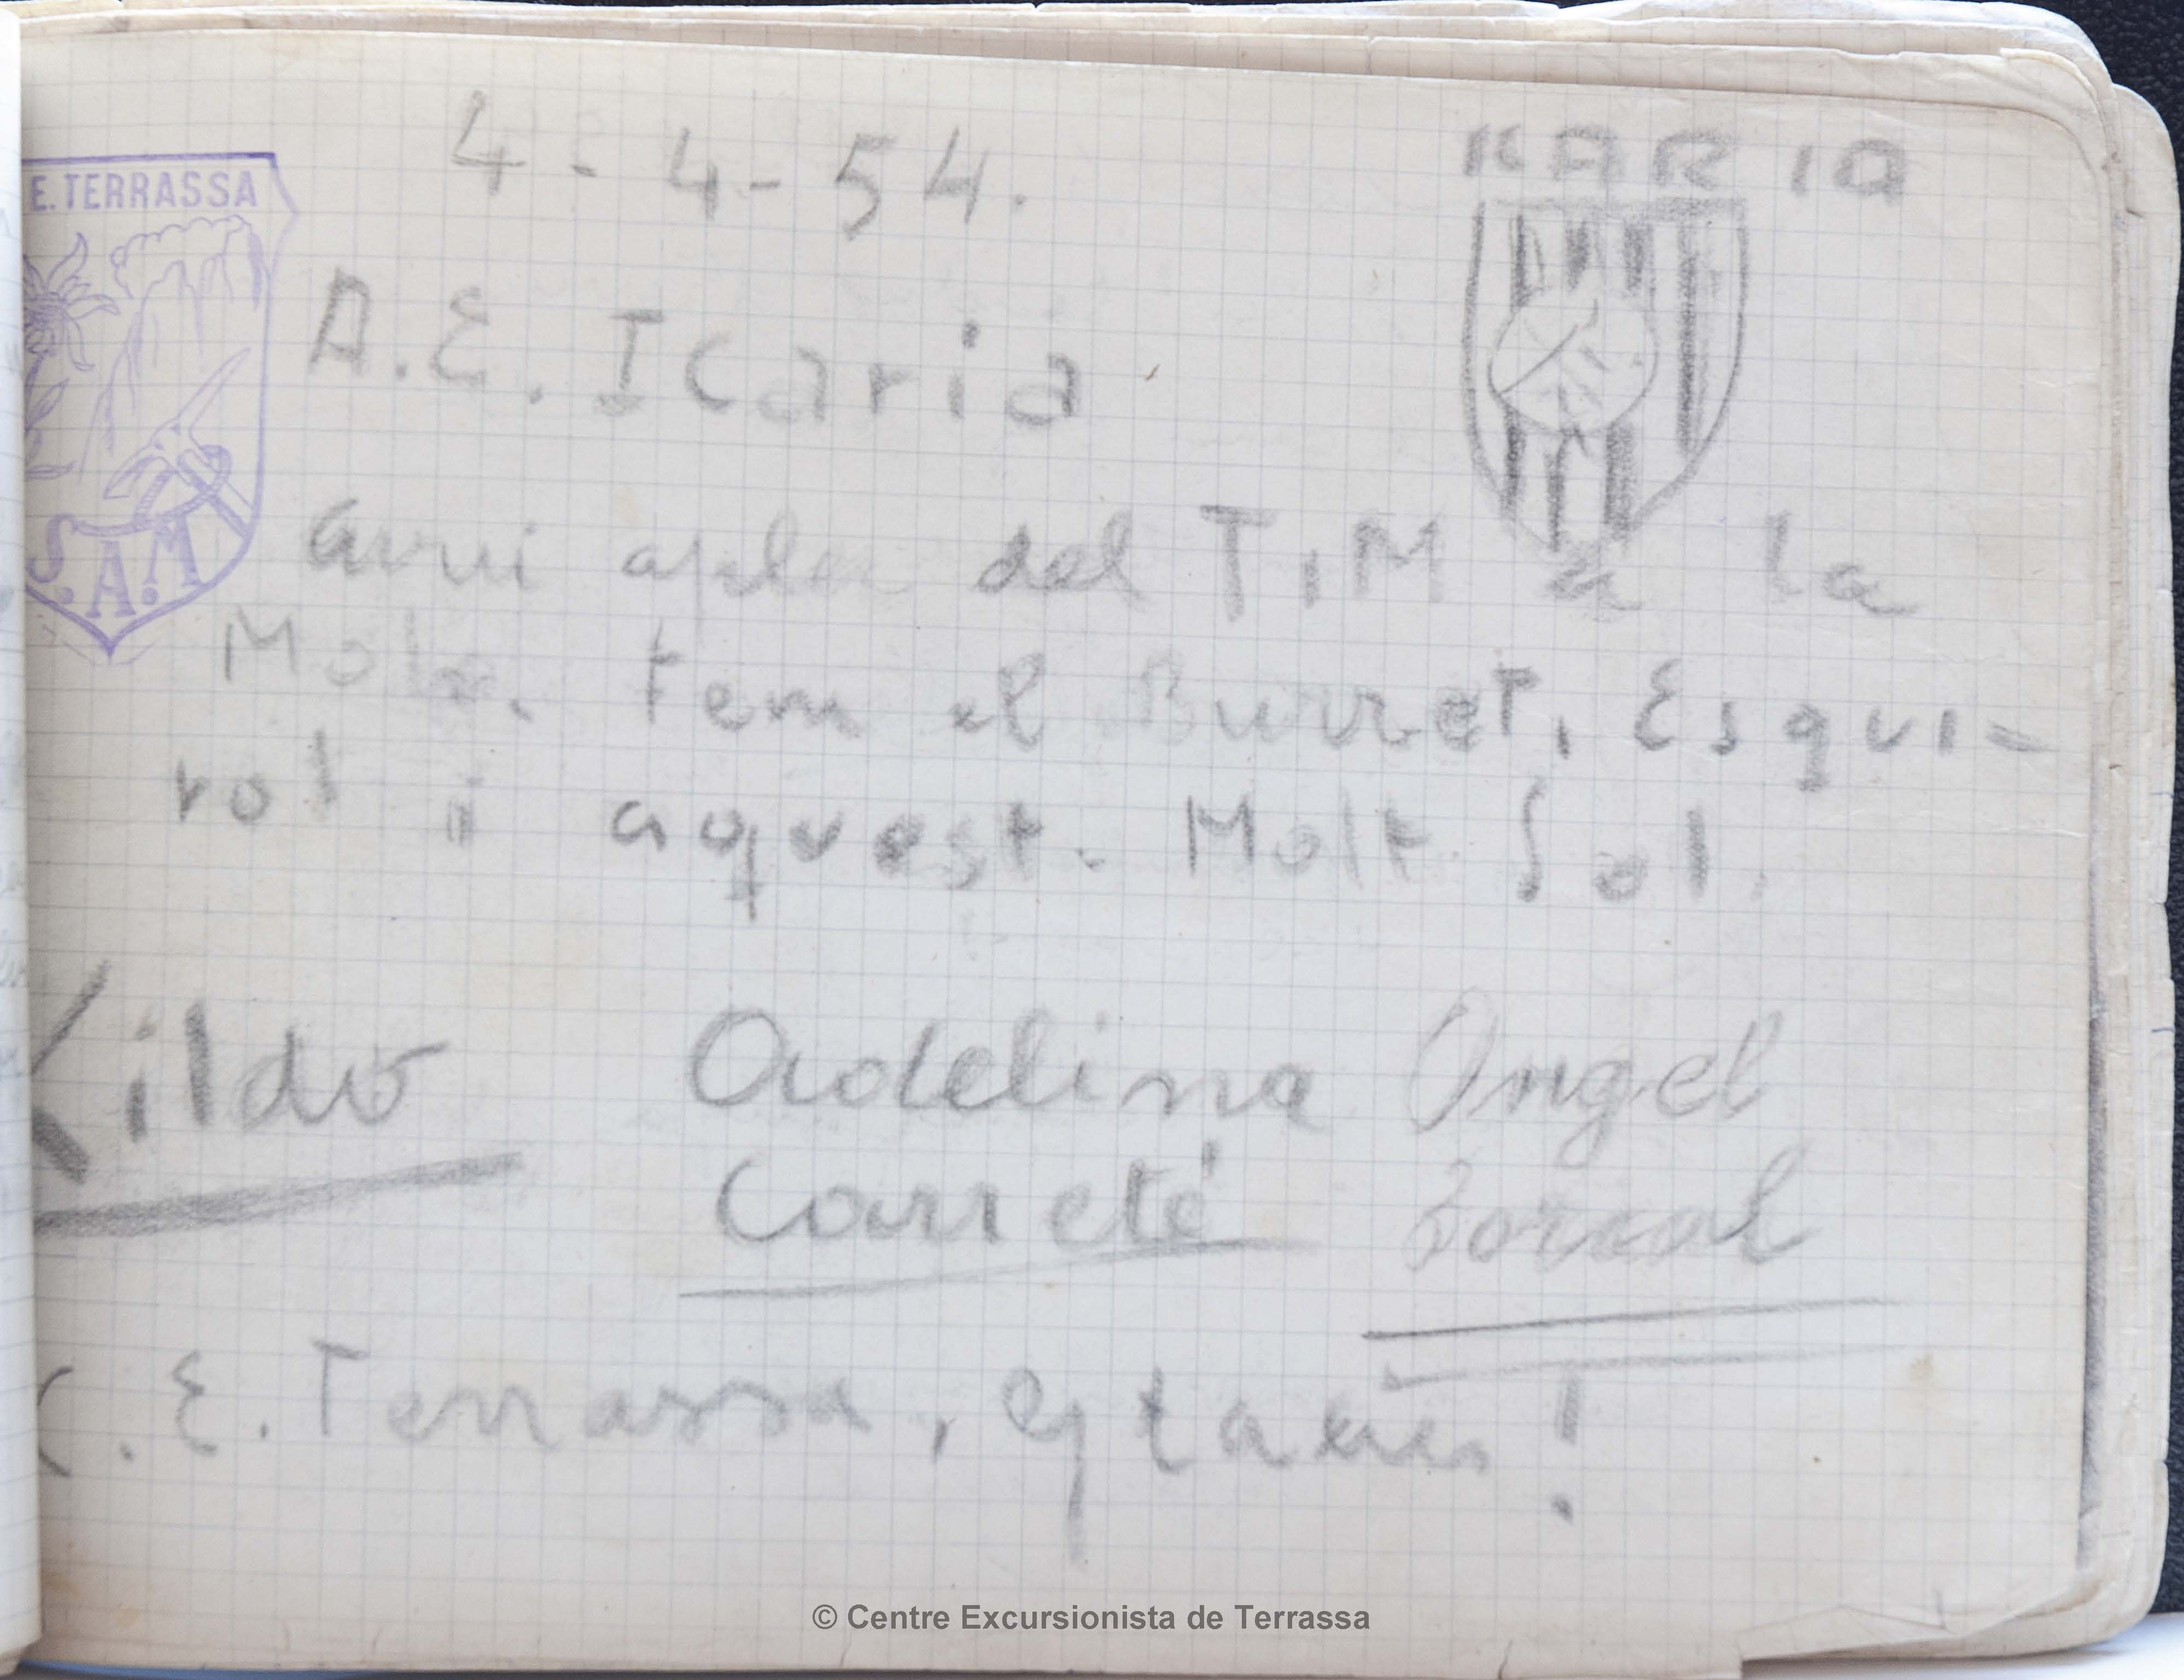 4-4-54.
KARIA
E. TERRASSA
A.E. Icaria
Avui aplec del TIM a la
Mola. Fem el Burret, Esqui-
rol i aquest. Molt Sol.
S.A.M
Kildo Adelina Angel
Carreté
C.E. Terrassa,
© Centre Excursionista de Terrassa